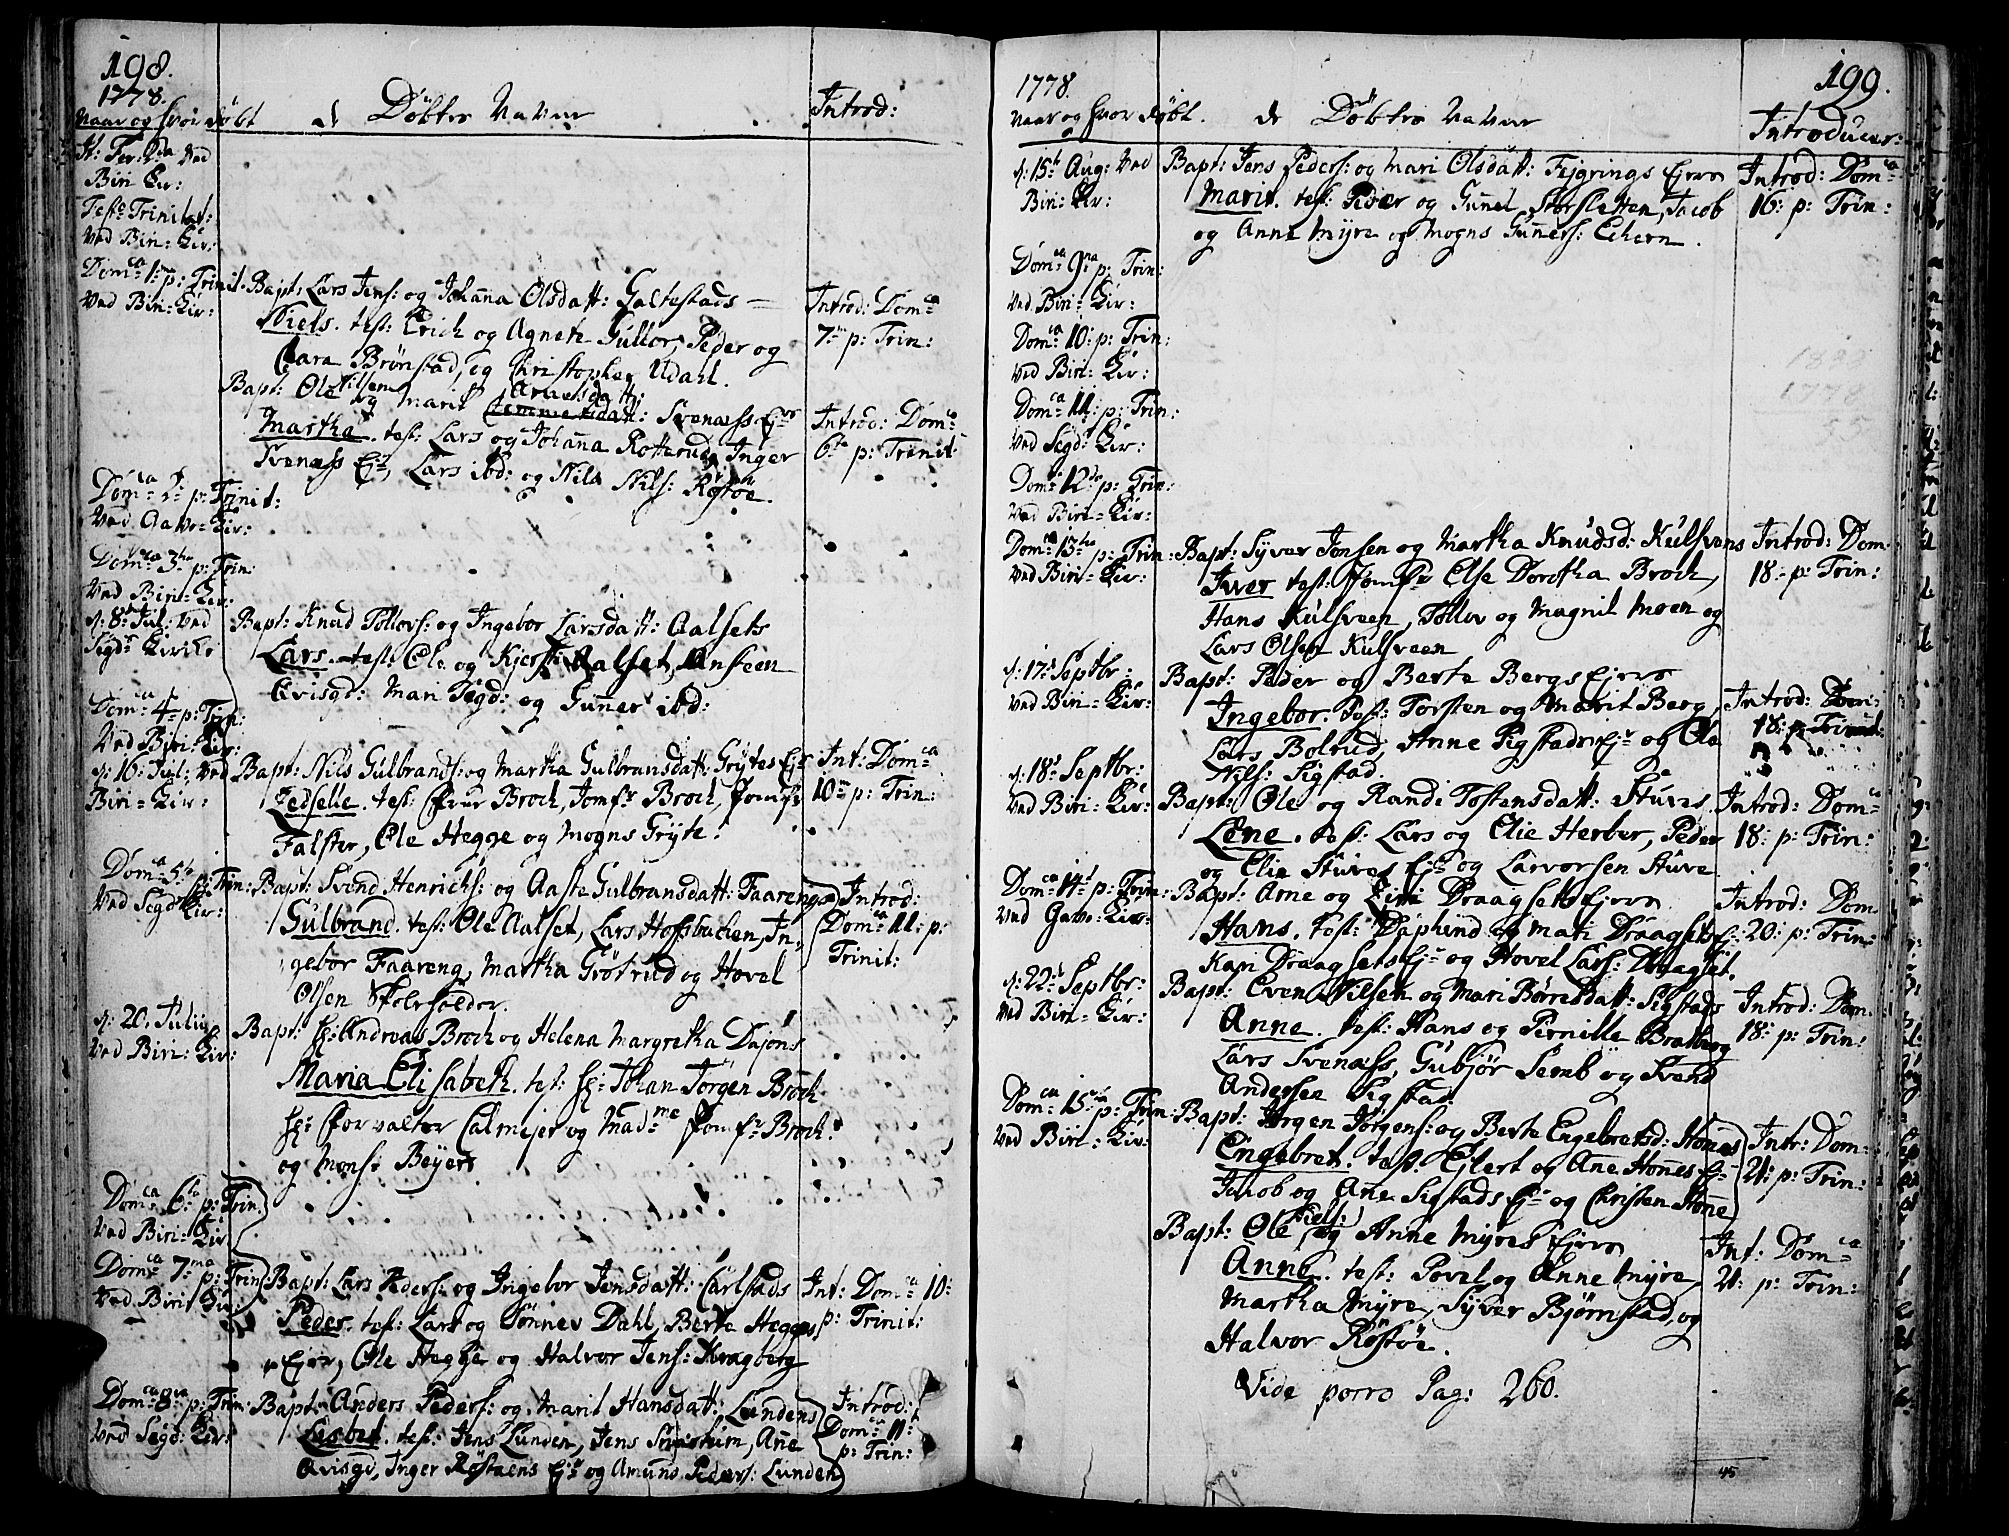 198.
1778.
Naar og hvor døbt
de Döbtes Navne
Introd:
H: Fer: 2da Ved
Biri Kir:
Festo Trinitat:
Ved Biri-Kir:
Domca 1: p: Trinit:
Ved Biri-Kir:
Bapt: Lars Jens: og Johanna Olsdatt: Galtestads
Niels. test: Erich og Agnete Gullor, Peder og
Clara Brønstad, og Christopher Udahl.
Introd: Domca
7de p: Trin:
Bapt: Ole Nilsen og Marit Arnesdatt: Svenæss Ejer
Martha. test: Lars og Johanna Rotterud, Inger
Svenæss Ejr, Lars ibd: og Nils Nils: Røstøe.
Introd: Domca
6te p: Trinit:
Domca 2: p: Trinit:
Ved Aavo-Kir:
Domca 3tia p: Trin:
Ved Biri-Kir:
d: 8de Jul: Ved
Segd: Kirke
Bapt: Knud Tollovs: og Ingebor Larsdatt: Aalsets
Lars. test: Ole og Kjersti Aalset, Ansteen
Avisgd: Mari Segd: og Gunner ibd:
Domca 4: p: Trin:
Ved Biri-Kir:
d: 16 Jul: Ved
Biri-Kir:
Bapt: Nils Gulbrands: og Martha Gulbransdatt: Grytes Ejr
Zedselle. test: Frue Broch, Jomfr Broch, Jomfr
Falster, Ole Hegge og Mogns Gryte.
Int: Domca
10de p: Trin:
Domca 5te p: Trin:
Ved Segd: Kir:
Bapt: Svend Henrichs: og Aaste Gulbransdatt: Faarengs
Gulbrand. test: Ole Aalset, Lars Hoffsbachen, In-
gebor Faareng, Martha Grøtrud og Hovel
Olsen
Introd:
Domca 11: p:
Trinit:
d: 20. Julii
Ved Biri-Kir:
Bapt: Hr: Andreas Broch og Helena Margretha Dajons
Maria Elisabeth. test: Hr: Johan Jørgen Broch
Hr: Forvalter Calmejer og Madme Jomfr Broch
og Monsr Beyer
Domca 6te p: Trin:
Ved Biri-Kir:
Domca 7ma p: Trin:
Ved Biri Kir:
Bapt: Lars Peders: og Ingebor Jensdatt: Carlstads
Peder. test: Lars og Sønnev Dahl, Berte Hegges
Ejer, Ole Hegge og Halvor Jens: Kragberg
Int: Domca 10:
p: Trinit:
Domca 8va p: Trin:
Ved Segd: Kir:
Bapt: Anders Peders: og Marit Hansdatt: Lundens
Lisbet. test: Jens Lunden, Jens, Ane
Avisgd, Inger Røstøens Ejr og Amund Peders: Lunden
Introd:
Domca 11:
p: Trin:
1778.
199.
Naar og hvor døbt.
de Döbtes Navne
Introducer:
d: 15de Aug: Ved
Biri-Kir:
Bapt: Jens Peders: og Mari Olsdatt: Fejgrings Ejere
Marit. test: Peder og Gunel Storsletten, Jacob
og Anne Myre og Mogns Gunners: Echern.
Introd: Domca
16: p: Trin:
Domca 9na p: Trin:
Ved Biri-Kir:
Domca 10: p: Trin:
Ved Biri-Kir:
Domca 11: p: Trin:
Ved Segd: Kir:
Domca 12te p: Trin:
Ved Biri-Kir:
Domca 13tia p: Trin:
Ved Biri-Kir:
Bapt: Syver Jonsen og Martha Knudsd: Kulsvens
Iver test: Jomfr Else Dorotha Broch,
Hans Kulsveen, Tollov og Magnil Moen og
Lars Olsen Kulsveen
Introd: Dom:
18: p: Trin:
d: 17de Septbr:
Ved Biri-Kir:
Bapt: Peder og Berte Bergs Ejere
Ingebor. test: Torsten og Marit Berg,
Lars Bolrud, Anne Sigstads Ejr og Ole
Nils: Sigstad.
Introd: Dom:
18: p: Trinit:
d: 18de Septbr:
Ved Biri-Kir:
Bapt: Ole og Randi Tostensdatt: Stuves
Lene. test: Lars og Elie Herber, Peder
og Elie Stuves Ejr og Larvorsen Stuve
Introd: Domca
18: p: Trin:
Domca 14de p: Trin:
Ved Gavo-Kir:
Bapt: Arne og Siri Draagsets Ejere
Hans. test: Daphind og Mari Draagsets Ejr
Kari Draagsets Ejr og Hovel Lars: Draagset.
Introd: Dom
20: p: Trin:
d: 22de Septbr:
Ved Biri-Kir:
Bapt: Even Nilsen og Mari Børresdatt: Sigstads
Anne. test: Hans og Pernille Bratberg
Lars Svenæss, Gubjør Semb og Svend
Andersen Sigstad
Introd: Dom:
18: p: Trin:
Domca 15: p: Trin:
Ved Biri-Kir:
Bapt: Jørgen Jørgens: og Berte Engebretsd: Hønes
Engebret. test: Ejlert og Ane Hønes Ejr
Jacob og Ane Sigstads Ejr og Christen Høne
Intr: Dom:
21: p: Trin:
Bapt: Ole Niels: og Anne Myres Ejere
Anne. test: Povel og Anne Myre,
Martha Myre, Syver Bjørnstad, og
Halvor Røstøe.
Int: Domca
21: p: Trin:
Vide porro Pag: 260.
45